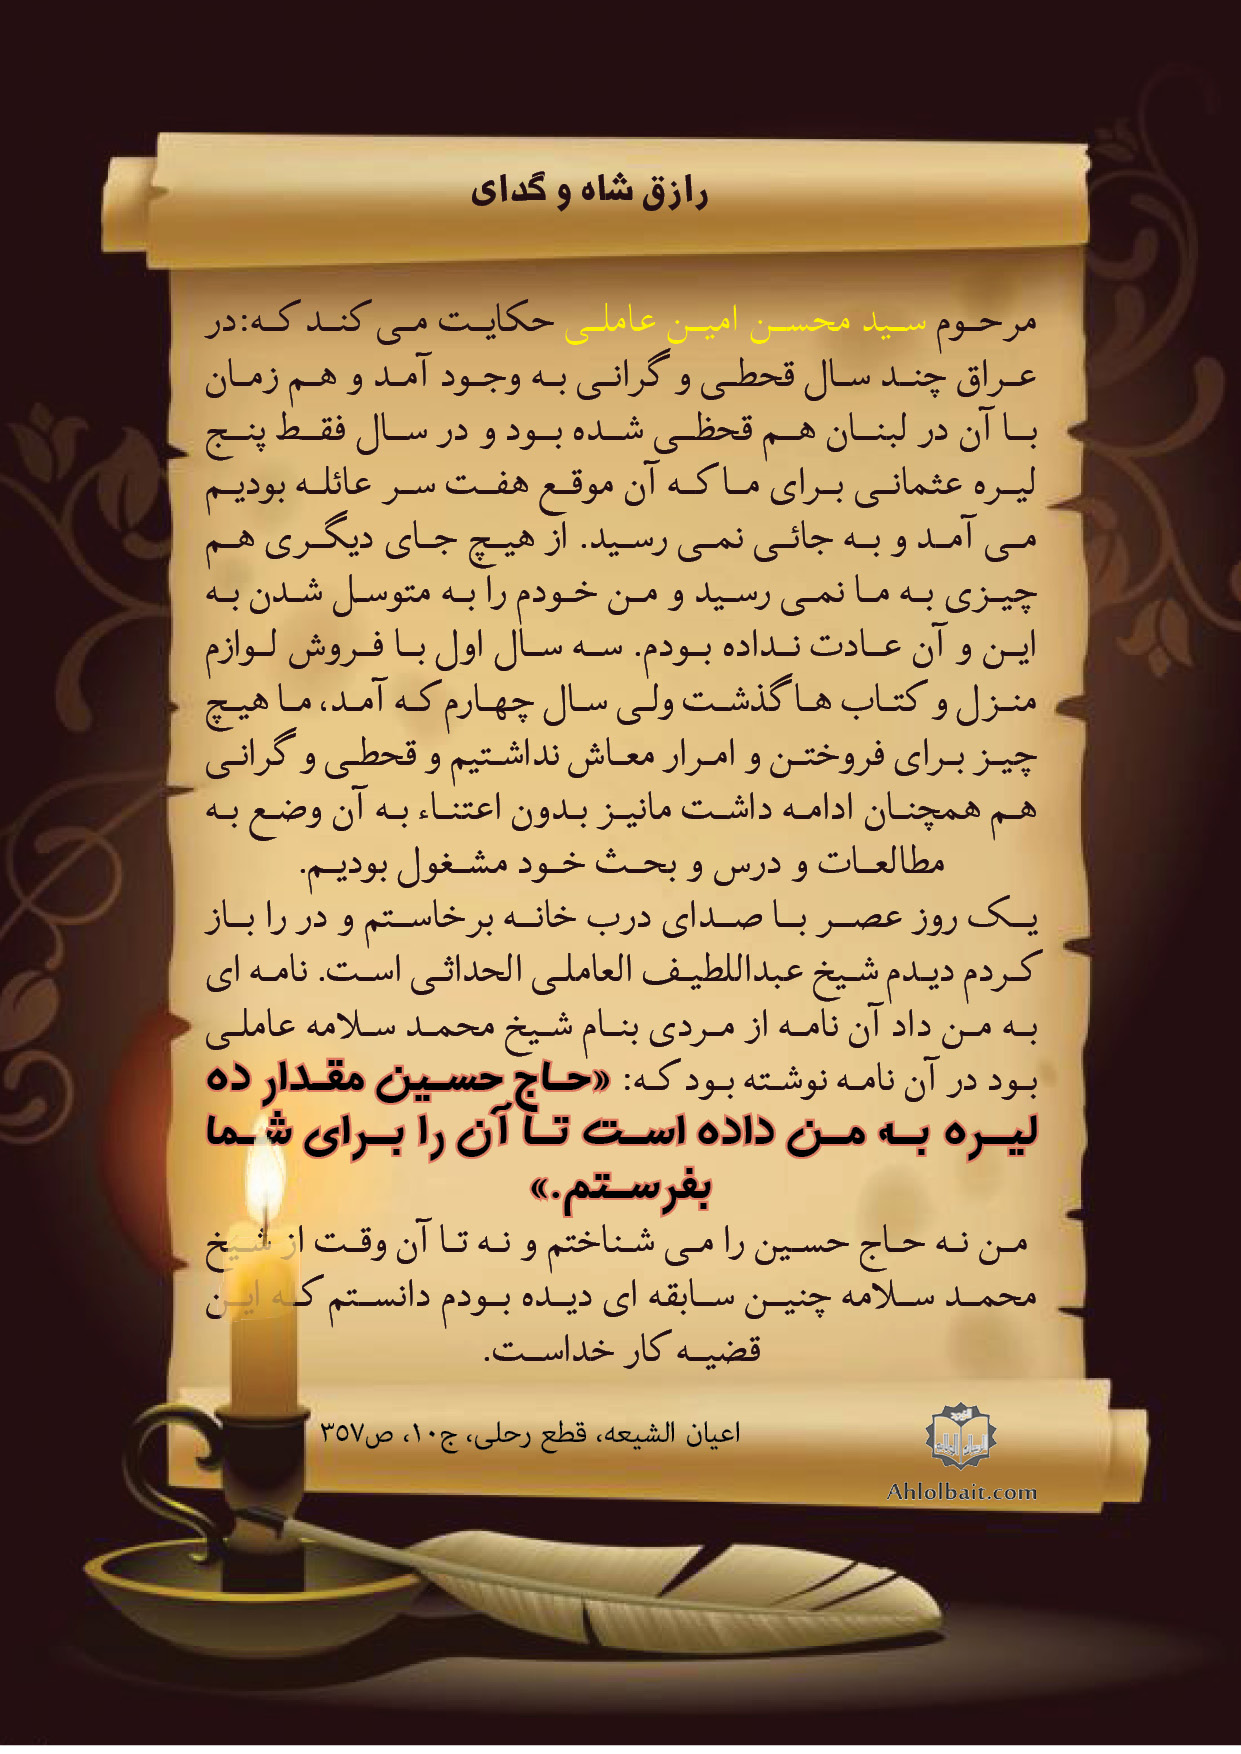 رازق شاه و گدای
مرحوم سید محسن امین عاملی حکایت می کند که:در
عراق چند سال قحطی و گرانی به وجود آمد و هم زمان
با آن در لبنان هم قحظی شده بود و در سال فقط پنج
لیره عثمانی برای ما که آن موقع هفت سر عائله بودیم
می آمد و به جائی نمی رسید. از هیچ جای دیگری هم
چیزی به ما نمی رسید و من خودم را به متوسل شدن به
این و آن عادت نداده بودم. سه سال اول با فروش لوازم
منزل و کتاب ها گذشت ولی سال چهارم که آمد، ما هیچ
چیز برای فروختن و امرار معاش نداشتیم و قحطی و گرانی
هم همچنان ادامه داشت مانیز بدون اعتناء به آن وضع به
مطالعات و درس و بحث خود مشغول بودیم.
یک روز عصر با صدای درب خانه برخاستم و در را باز
کردم دیدم شیخ عبداللطیف العاملی الحداثی است. نامه ای
به من داد آن نامه از مردی بنام شیخ محمد سلامه عاملی
بود در آن نامه نوشته بود که: «حاج حسین مقدار ده
لیره به من داده است تا آن را برای شما
بفرستم.»
من نه حاج حسین را می شناختم و نه تا آن وقت از شیخ
محمد سلامه چنین سابقه ای دیده بودم دانستم که این
قضیه کار خداست.
اعیان الشیعه، قطع رحلی، ج۱۰، ص۳۵۷
Ahlolbait.com